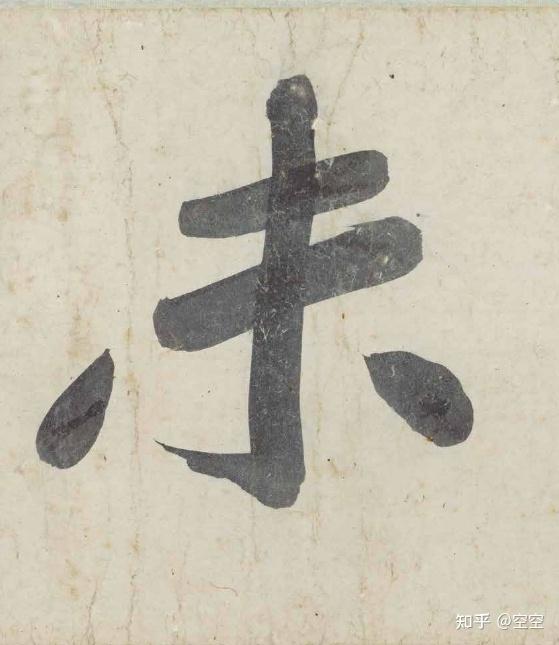 未
知乎 @空空